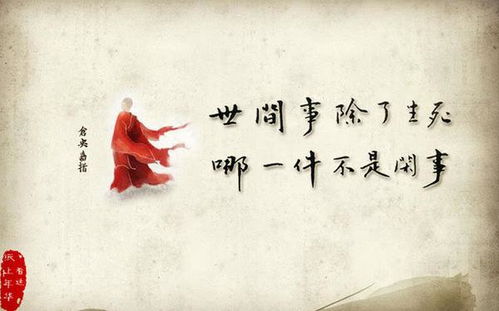 世間事除了生死
哪一件不是閑事
倉央嘉措